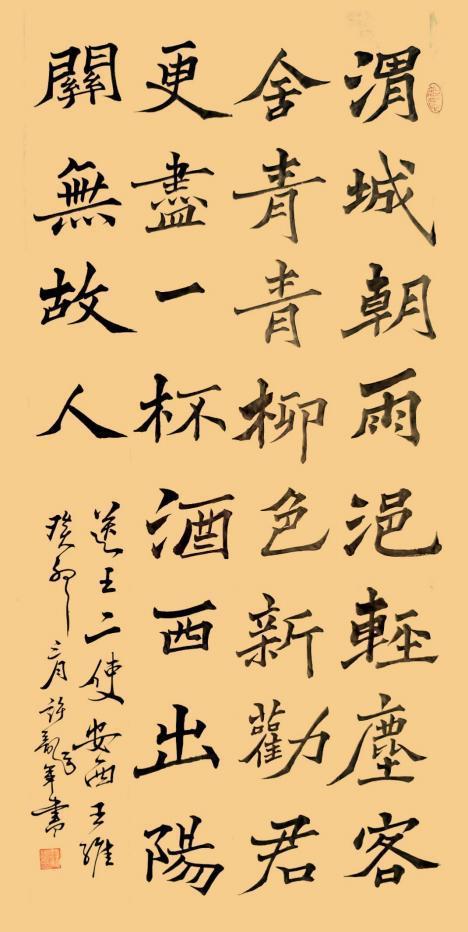 渭城朝雨浥輕塵客
舍青青柳色新勸君
更盡一杯酒西出陽
關無故人
送王二使安西王維
癸卯三月許龍年書